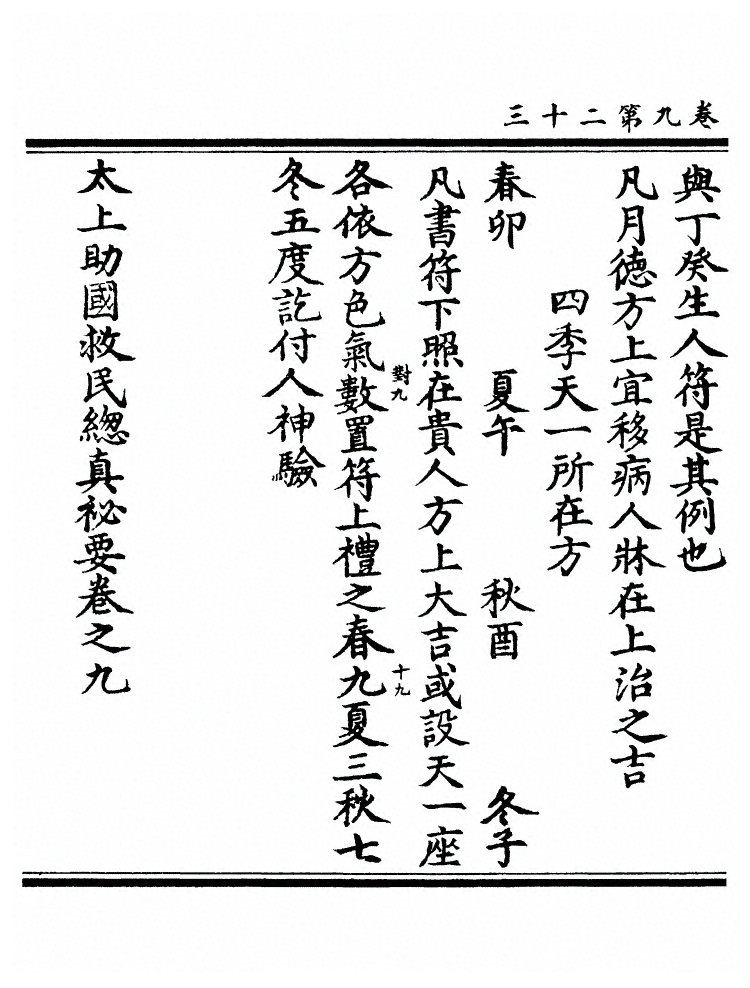 卷九第二十三
與丁癸生人符是其例也
凡月德方上宜移病人牀在上治之吉
四季天一所在方
春卯 夏午 秋酉 冬子
凡書符下照在貴人方上大吉或設天一座
對九 十九
各依方色氣數置符上禮之春九夏三秋七
冬五度訖付人神驗
太上助國救民總真祕要卷之九